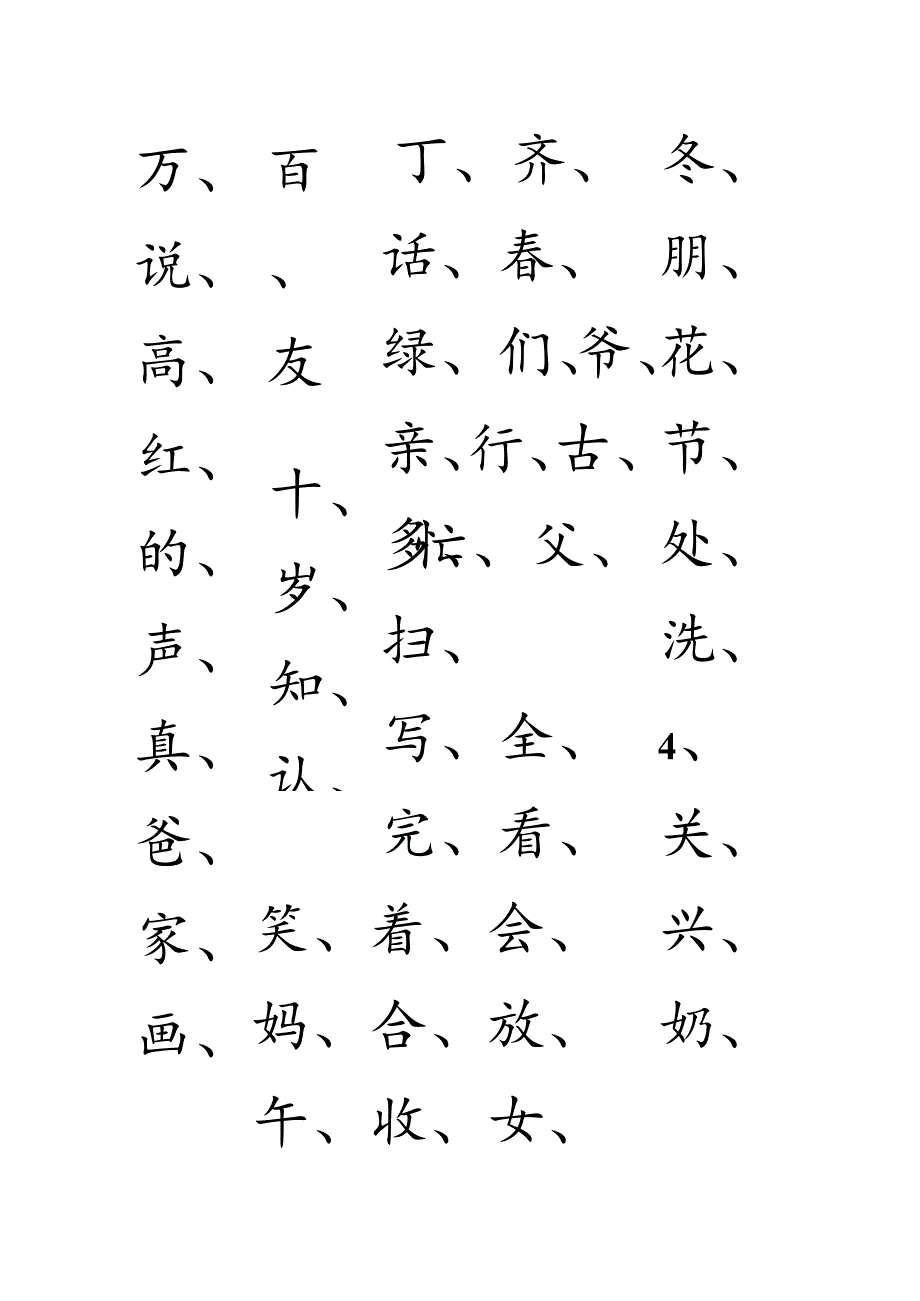 万、百丁、齐、冬、
说、、话、春、朋、
高、友绿、们、爷、花、
红、十、亲、行、古、节、
的、岁、多忙、父、处、
声、知、扫、洗、
真、认、写、全、4、
爸、完、看、关、
家、笑、着、会、兴、
画、妈、合、放、奶、
午、收、女、